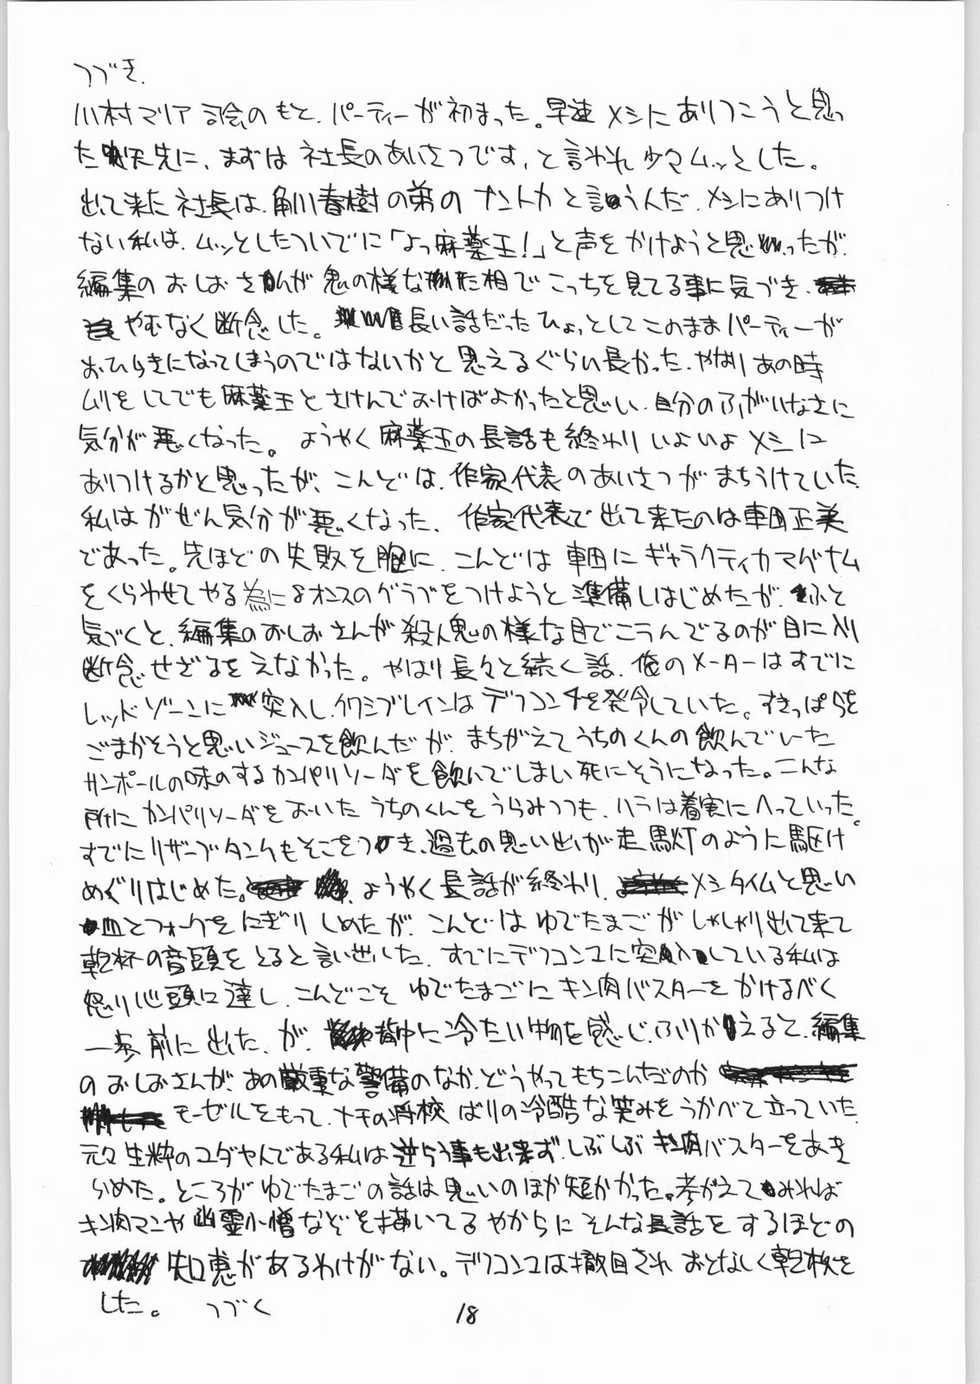 つづき.
川村マリア司会のもと、パーティーが初まった。早速メシにありつこうと思っ
た矢先に、まずは社長のあいさつです、と言われ少々ムッとした。
出て来た社長は、角川春樹の弟のナントカと言うんだ、メシにありつけ
ない私は、ムッとしたついでに「よっ麻薬王!」と声をかけようと思ったが、
編集のおしおさんが鬼の様な形相でこっちを見てる事に気づき、
やむなく断念した。長い話だったひょっとしてこのままパーティーが
おひらきになってしまうのではないかと思えるぐらい長かった、やはりあの時
ムリをしてでも麻薬王とさけんでおけばよかったと思い、自分のふがいなさに
気分が悪くなった。ようやく麻薬王の長話も終わりいよいよメシに
ありつけるかと思ったが、こんどは、作家代表のあいさつがまちうけていた、
私はがぜん気分が悪くなった、作家代表で出て来たのは車田正美
であった。先ほどの失敗を胸に、こんどは車田にギャラクティカマグナム
をくらわせてやる為に8オンスのグラブをつけようと準備しはじめたが、ふと
気づくと、編集のおしおさんが殺人鬼の様な目でこうんでるのが目に入り
断念せざるをえなかった。やはり長々と続く話、俺のメーターはすでに
レッドゾーンに突入し、クワシブレインはデフコン4を発令していた。すきっぱらを
ごまかそうと思いジュースを飲んだが、まちがえてうちのくんの飲んでいた
サンポールの味のするカンパリソーダを飲んでしまい死にそうになった。こんな
所にカンパリソーダをおいたうちのくんをうらみつつも、ハラは着実にへっていった。
すでにリザーブタンクもそこをつき、過去の思い出が走馬灯のように駆け
めぐりはじめた。ようやく長話が終わり、メシタイムと思い
皿とフォークをにぎりしめたが、こんどはゆでたまごがしゃしゃり出て来て
乾杯の音頭をとると言い出した、すでにデフコン2に突入している私は
怒り心頭に達し、こんどこそゆでたまごにキン肉バスターをかけるべく
一歩前に出た、が、背中に冷たい物を感じ、ふりかえると、編集
のおしおさんが、あの厳重な警備のなか、どうやってもちこんだのか
モーゼルをもって、ナチの将校ばりの冷酷な笑みをうかべて立っていた、
元々生粋のユダヤ人である私は逆らう事も出来ず、しぶしぶキン肉バスターをあき
らめた。ところがゆでたまごの話は思いのほか短かかった。考がえてみれば
キン肉マンや幽霊小僧などを描いてるやからにそんな長話をするほどの
知恵があるわけがない。デフコン2は撤回されおとなしく乾杯を
した。つづく
18